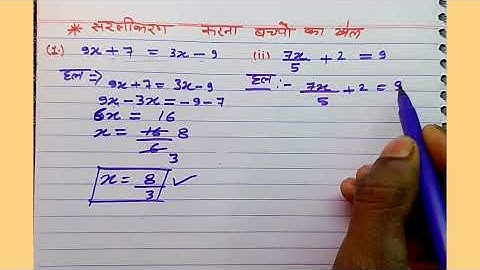 * सरलीकरण करना बच्चो का खेल
(1.) 9x + 7 = 3x - 9
हल ⇒ 9x + 7 = 3x - 9
9x - 3x = -9 - 7
6x = 16
x = 16/6 8/3
x = 8/3 ✓
(ii) 7x/5 + 2 = 9
हल :- 7x/5 + 2 = 9